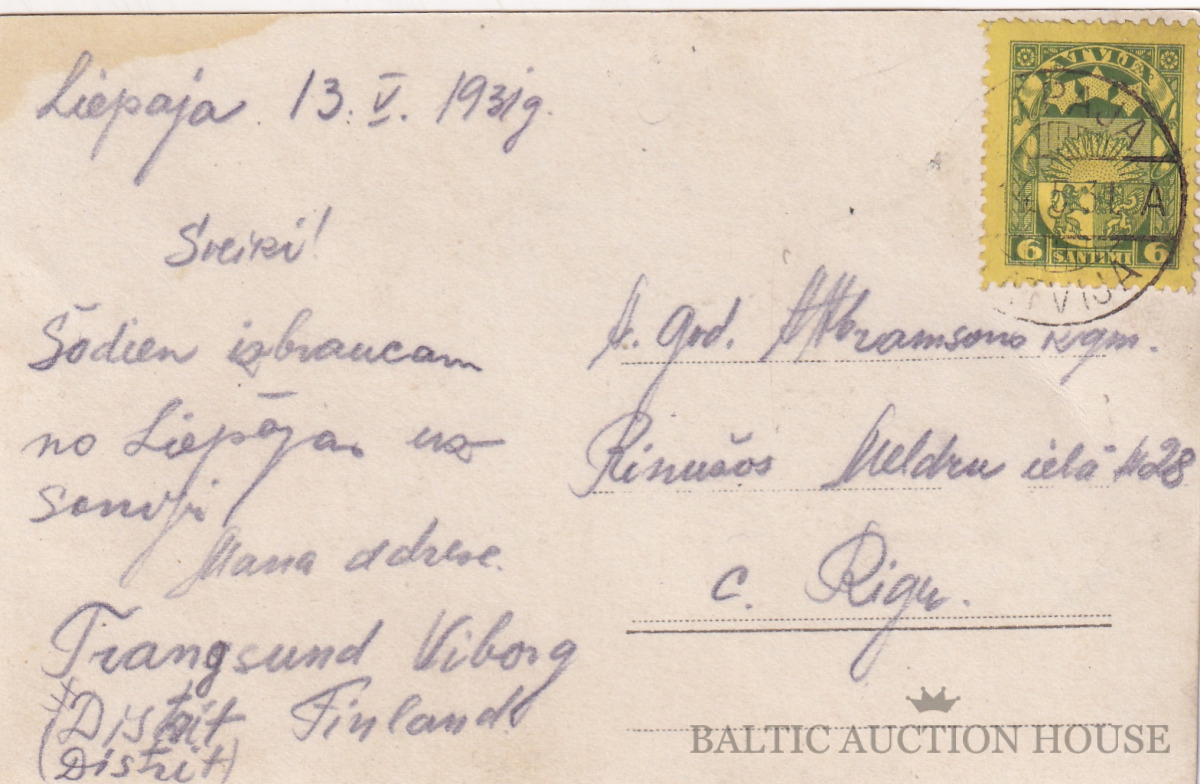 Liepaja 13. V. 1931g.
Sveiki!
Šodien izbraucam
no Liepājas uz
somiju
Mana adrese.
Trangsund Viborg
Distrit Finland.
(Distrit)
A. god. A Abramsons kgm.
Rinužos Meldru ielā №28
c. Rigu.
LATVIJA
6 SANTIMI 6
LIEPAJA
5 31 A
LATVIJA
BALTIC AUCTION HOUSE